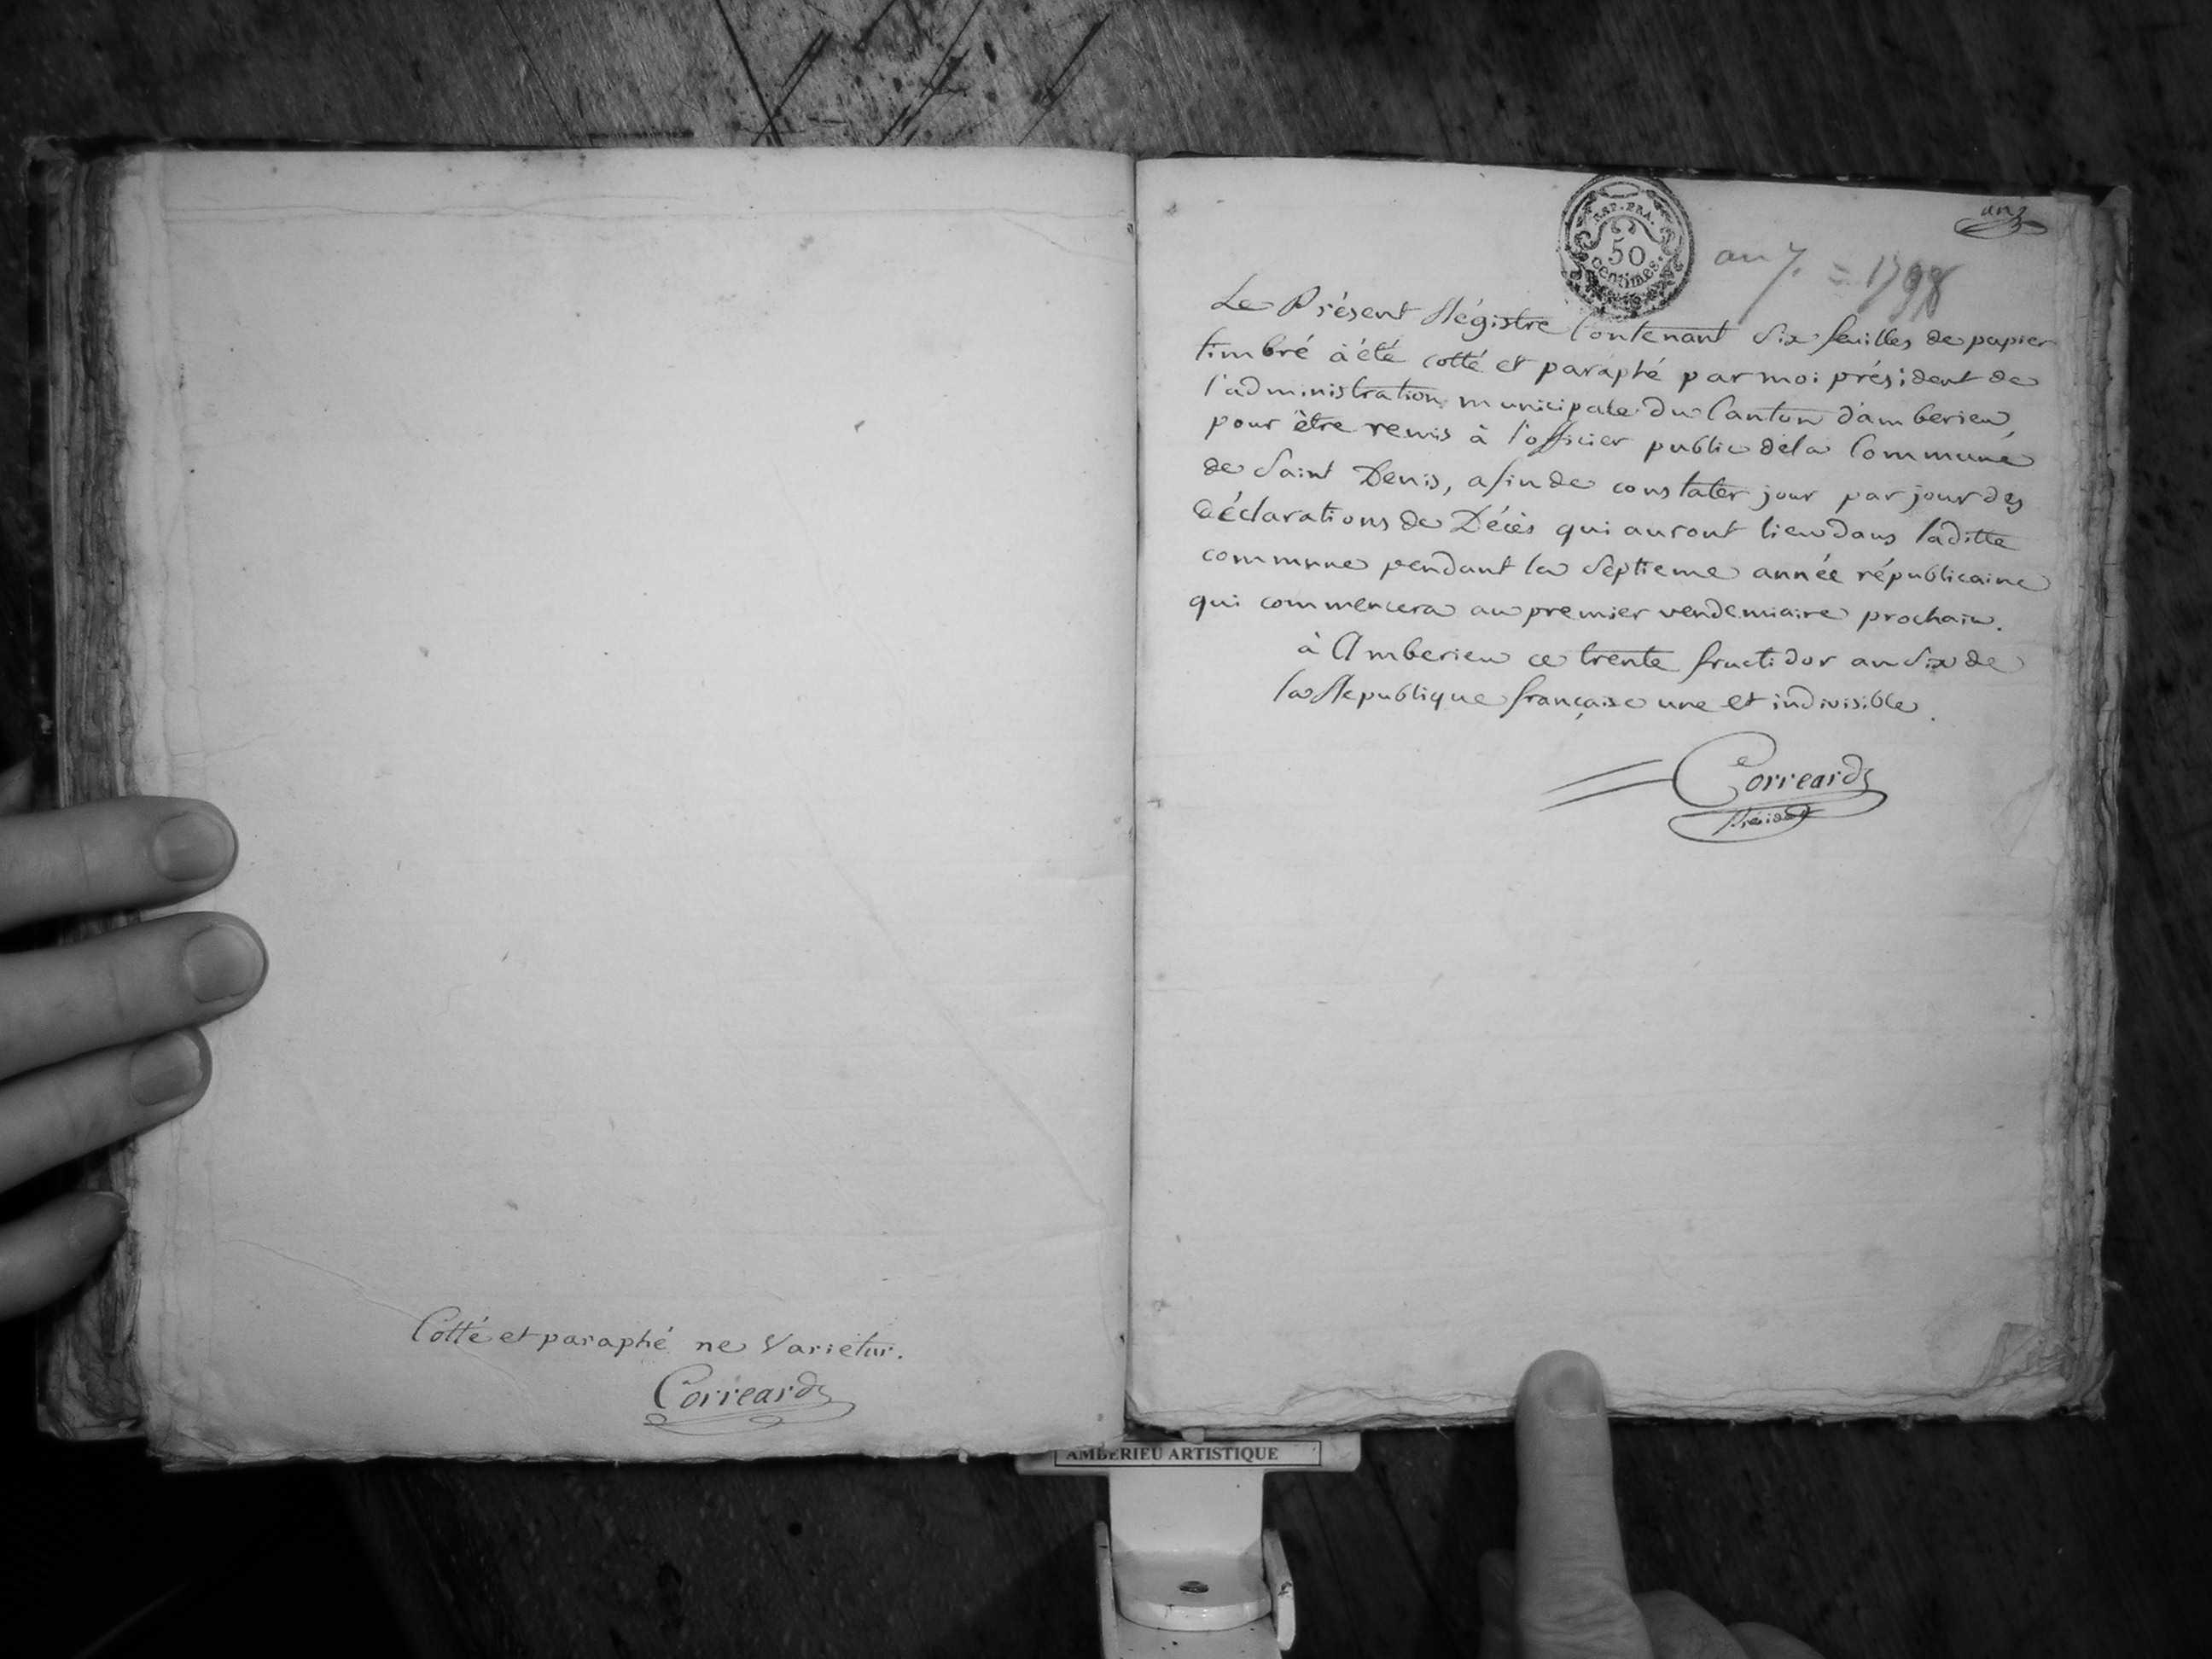 Cotté et paraphé ne Varietur.
Correard
REP. FRA.
50
centimes.
an 7. = 1798
Le Présent Régistre Contenant Six feuilles de papier
timbré à été cotté et paraphé par moi président de
l'administration municipale du Canton d'amberieu,
pour être remis à l'officier public dela Commune
de Saint Denis, afin de constater jour par jour des
déclarations de Décès qui auront lieu dans laditte
commune pendant la Septieme année républicaine
qui commencera au premier vendemiaire prochain.
à Amberieu ce trente fructidor an Six de
la Republique française une et indivisible.
Correard
Président
AMBERIEU ARTISTIQUE